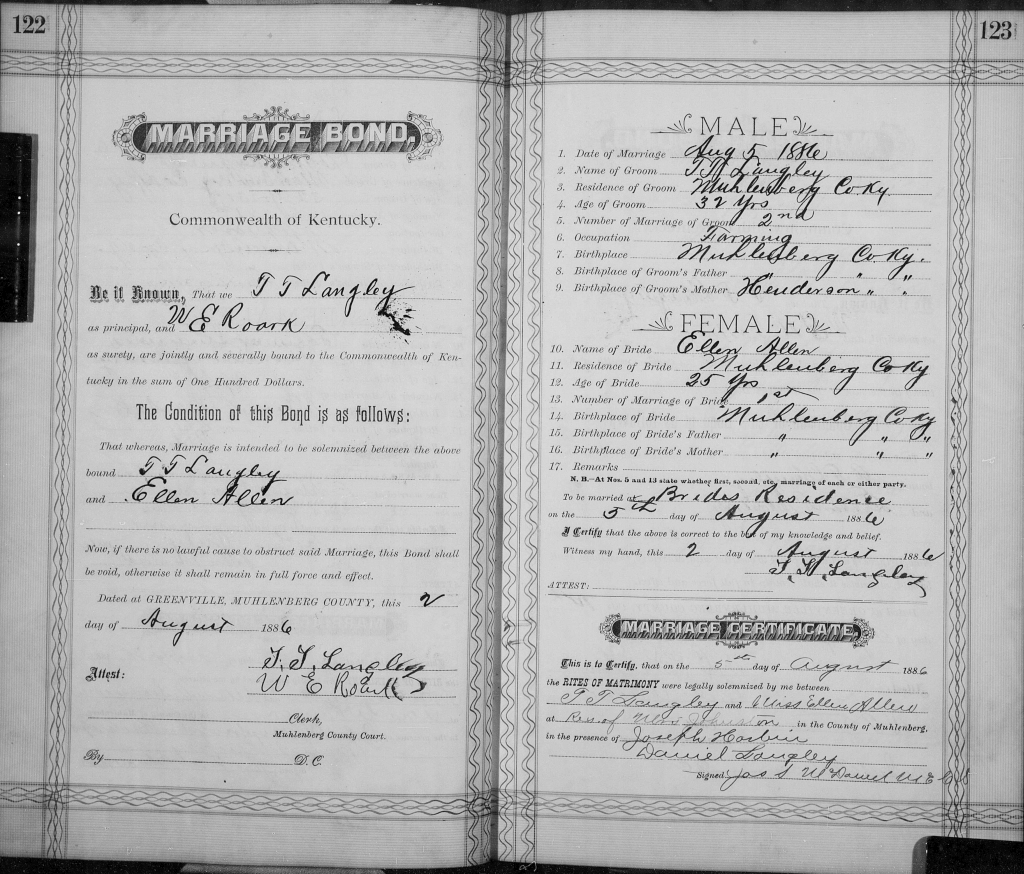 122
MARRIAGE BOND,
Commonwealth of Kentucky.
Be it Known, That we T T Langley
as principal, and W E Roark
as surety, are jointly and severally bound to the Commonwealth of Ken-
tucky in the sum of One Hundred Dollars.
The Condition of this Bond is as follows:
That whereas, Marriage is intended to be solemnized between the above
bound T T Langley
and Ellen Allen
Now, if there is no lawful cause to obstruct said Marriage, this Bond shall
be void, otherwise it shall remain in full force and effect.
Dated at GREENVILLE, MUHLENBERG COUNTY, this 2
day of August 1886
Attest: T. T. Langley
W E Roark
Clerk,
Muhlenberg County Court.
By D. C.
123
MALE
1. Date of Marriage Aug 5 1886
2. Name of Groom T T Langley
3. Residence of Groom Muhlenberg Co Ky
4. Age of Groom 32 Yrs
5. Number of Marriage of Groom 2nd
6. Occupation Farming
7. Birthplace Muhlenberg Co Ky.
8. Birthplace of Groom's Father " " "
9. Birthplace of Groom's Mother Henderson " "
FEMALE
10. Name of Bride Ellen Allen
11. Residence of Bride Muhlenberg Co Ky
12. Age of Bride 25 Yrs
13. Number of Marriage of Bride 1st
14. Birthplace of Bride Muhlenberg Co Ky
15. Birthplace of Bride's Father " " "
16. Birthplace of Bride's Mother " " "
17. Remarks
N. B.—At Nos. 5 and 13 state whether first, second, etc., marriage of each or either party.
To be married at Brides Residence
on the 5th day of August 1886
I Certify that the above is correct to the best of my knowledge and belief.
Witness my hand, this 2 day of August 1886
Langley
ATTEST:
MARRIAGE CERTIFICATE
This is to Certify, that on the 5th day of August 1886
the RITES OF MATRIMONY were legally solemnized by me between
T T Langley and Miss Ellen Allen
at Res. of Johnson in the County of Muhlenberg,
in the presence of Joseph Harbin
Daniel Langley
Signed, Jas S McDaniel M E